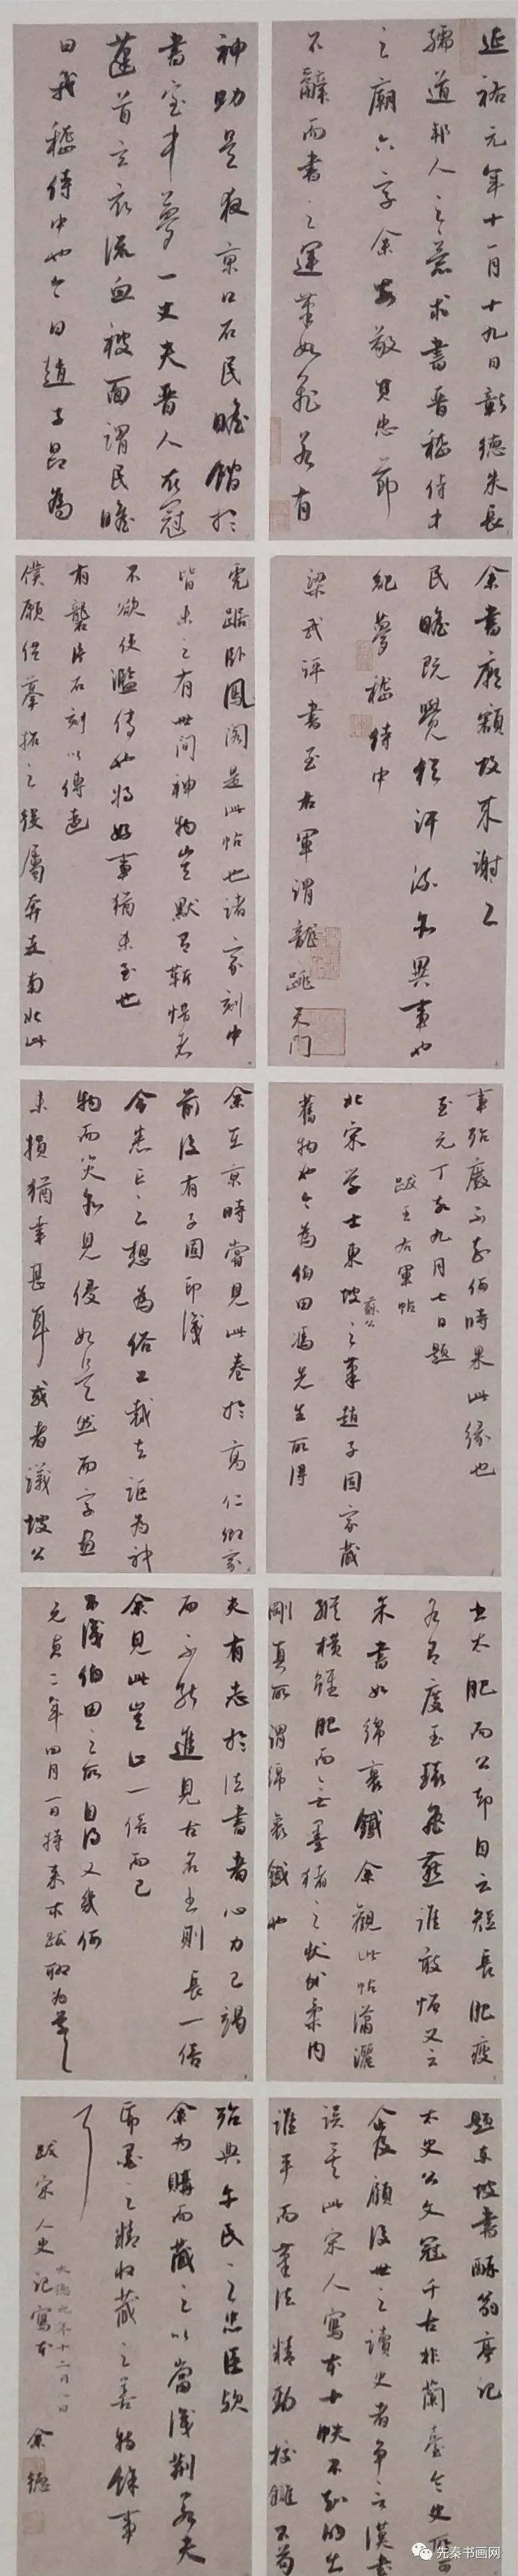 延祐元年十一月十九日彰德朱長
孺道邦人之意求書晉嵇侍中
之廟六字余每敬其忠節
不辭而書之運筆如飛若有
神助是夜京口石民瞻館於
書室中夢一丈夫晉人衣冠
蓬首玄衣流血被面謂民瞻
曰我嵇侍中也今日趙子昂為
余書廟額故來謝之
民瞻既覺猶汗流亦異事也
紀夢嵇侍中
梁武評書至右軍謂龍跳天門
虎踞臥鳳閣是此帖也諸家刻中
皆未之有世間神物豈默有靳惜者
不欲使濫傳也將好事猶未至也
有礱片石刻以傳遠
僕願從摹拓之後屬奔走南北此
事殆廢不知何時果此緣也
至元丁亥九月七日題
跋王右軍帖
北宋學士東坡蘇公之筆趙子固家藏
舊物也今為伯田馮先生所得
余在京時嘗見此卷於高仁卿家
前後有子固印識
今悉亡之想為俗工裁去詎為神
物而災亦見侵如是然而字畫
未損猶幸甚耳或者議坡公
書太肥而公卻自云短長肥瘦
各有度玉環飛燕誰敢憎又云
余書如綿裹鐵余觀此帖瀟灑
縱橫雖肥而無墨豬之狀外柔內
剛真所謂綿裹鐵也
夫有志於法書者心力已竭
而不能進見古名書則長一倍
余見此豈止一倍而已
不識伯田之所自得又幾何
元貞二年四月一日特來求跋聊為書
題東坡書醉翁亭記
太史公文冠千古非蘭臺令史所
企及顧後世之讀史者爭言漢書
誤矣此宋人寫本十帙不知的出
誰手而筆法精勁校讎不苟
殆與之忠臣歟
余為購而藏之以當識荊若夫
帋墨之精收藏之善特餘事
耳
跋宋人史記寫本
年十二月一日
余德
先秦书画网